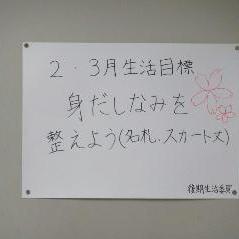 2・3月生活目標
身だしなみを
整えよう(名札、スカート丈)
後期生活委員